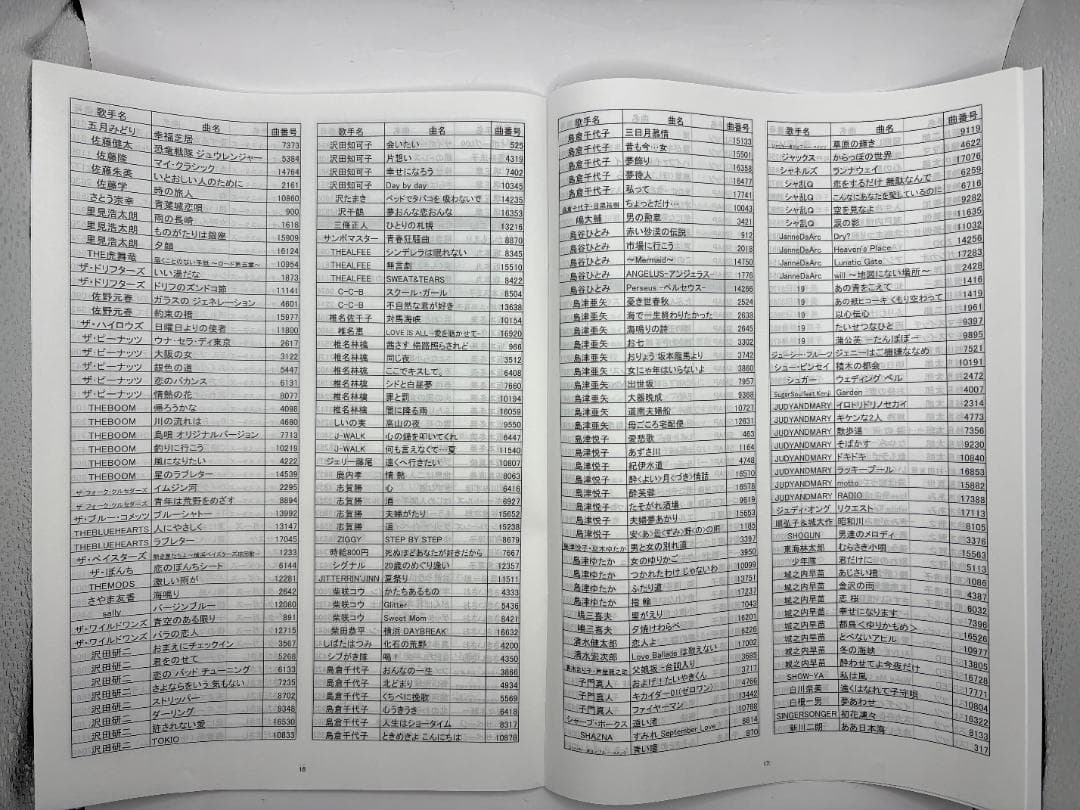 歌手名 曲名 曲番号
五月みどり 幸福芝居 7373
佐藤健太 恐竜戦隊 ジュウレンジャー 5384
佐藤隆 マイ・クラシック 14764
佐藤朱美 いとおしい人のために 2161
佐藤学 時の旅人 10860
さとう宗幸 青葉城恋唄 900
里見浩太朗 雨の長崎 1618
里見浩太朗 ものがたりは銀座 15909
里見浩太朗 夕顔 16124
THE虎舞竜 10954
ザ・ドリフターズ いい湯だな 1873
ザ・ドリフターズ ドリフのズンドコ節 11141
佐野元春 ガラスの ジェネレーション 4601
佐野元春 約束の橋 15977
ザ・ハイロウズ 日曜日よりの使者 11800
ザ・ピーナッツ ウナ・セラ・ディ東京 2617
ザ・ピーナッツ 大阪の女 3122
ザ・ピーナッツ 銀色の道 5447
ザ・ピーナッツ 恋のバカンス 6131
ザ・ピーナッツ 情熱の花 8077
THEBOOM 帰ろうかな 4098
THEBOOM 川の流れは 4680
THEBOOM 島唄 オリジナルバージョン 7713
THEBOOM 釣りに行こう 10219
THEBOOM 風になりたい 4222
THEBOOM 星のラブレター 14539
ザ・フォーク・クルセダーズ イムジン河 2295
ザ・フォーク・クルセダーズ 青年は荒野をめざす 8894
ザ・ブルー・コメッツ ブルーシャトー 13992
THEBLUEHEARTS 人にやさしく 13147
THEBLUEHEARTS ラブレター 17045
ザ・ベイスターズ 1233
ザ・ぼんち 恋のぼんちシート 6144
THEMODS 激しい雨が 12281
さやま友香 海鳴り 2642
sally バージンブルー 12060
ザ・ワイルドワンズ 青空のある限り 891
ザ・ワイルドワンズ バラの恋人 12715
沢田研二 おまえにチェックイン 3567
沢田研二 君をのせて 5268
沢田研二 恋の バッド チューニング 6133
沢田研二 さよならをいう 気もない 7235
沢田研二 ストリッパー 8702
沢田研二 ダーリング 9348
沢田研二 許されない愛 16530
沢田研二 TOKIO 10833
歌手名 曲名 曲番号
沢田知可子 会いたい 525
沢田知可子 片想い 4319
沢田知可子 幸せになろう 7402
沢田知可子 Day by day 10345
沢たまき ベッドでタバコを 吸わないで 14235
沢千鶴 夢おんな恋おんな 16353
三條正人 ひとりの札幌 13216
サンボマスター 青春狂騒曲 8870
THEALFEE シンデレラは眠れない 8345
THEALFEE 無言劇 15510
THEALFEE SWEAT&TEARS 8422
C-C-B スクール・ガール 8504
C-C-B 不自然な君が好き 13638
椎名佐千子 対馬海峡 10154
椎名恵 LOVE IS ALL ~愛を聴かせて~ 16920
椎名林檎 茜さす 帰路照らされど 966
椎名林檎 同じ夜 3512
椎名林檎 ここでキスして。 6408
椎名林檎 シドと白昼夢 7660
椎名林檎 罪と罰 10194
椎名林檎 闇に降る雨 16059
しいの実 高山の夜 9550
J-WALK 心の鍵を叩いてくれ 6447
J-WALK 何も言えなくて…夏 11540
ジェリー藤尾 遠くへ行きたい 10807
鹿内孝 情熱 8063
志賀勝 心 6416
志賀勝 酒 6927
志賀勝 夫婦がたり 15652
志賀勝 道 15238
ZIGGY STEP BY STEP 8679
時給800円 死ぬほどあなたが好きだから 7667
シグナル 20歳のめぐり逢い 12357
JITTERIN'JINN 夏祭り 11511
柴咲コウ かたちあるもの 4333
柴咲コウ Glitter 5436
柴咲コウ Sweet Mom 8421
柴田恭平 横浜 DAYBREAK 16632
しばたはつみ 化石の荒野 4200
シブがき隊 喝! 4350
島倉千代子 おんなの一生 3866
島倉千代子 北どまり 4934
島倉千代子 くちべに挽歌 5569
島倉千代子 心うきうき 6418
島倉千代子 人生はショータイム 8317
島倉千代子 ときめきよ こんにちは 10878
16
歌手名 曲名 曲番号
島倉千代子 三日月慕情 15133
島倉千代子 昔も今…女 15501
島倉千代子 夢飾り 16358
島倉千代子 夢待人 16477
島倉千代子 私って 17741
ちょっとだけ… 10043
嶋大輔 男の勲章 3421
島谷ひとみ 赤い砂漠の伝説 912
島谷ひとみ 市場に行こう 2018
島谷ひとみ ~Mermaid~ 14751
島谷ひとみ ANGELUS-アンジェラス- 1776
島谷ひとみ Perseus -ペルセウス- 14266
島津亜矢 憂き世春秋 2524
島津亜矢 海で一生終わりたかった 2638
島津亜矢 海鳴りの詩 2645
島津亜矢 お七 3302
島津亜矢 おりょう 坂本龍馬より 3742
島津亜矢 女にゃ年はいらないよ 3860
島津亜矢 出世坂 7957
島津亜矢 大器晩成 9368
島津亜矢 道南夫婦船 10721
島津亜矢 母ごころ宅配便 12631
島津悦子 愛愁歌 463
島津悦子 あずさ川 1164
島津悦子 紀伊水道 4748
島津悦子 酔(よい)月(づき)情話 16510
島津悦子 酔芙蓉 16578
島津悦子 たそがれ酒場 9619
島津悦子 夫婦夢あかり 15653
島津悦子 1185
男と女の別れ道 3397
島津ゆたか 女のゆりかご 3950
島津ゆたか つかれたわけ じゃないわ 10099
島津ゆたか ふたり道 13751
島津ゆたか 指輪 17237
嶋三喜夫 里がえり 7043
嶋三喜夫 夕焼けわらべ 16201
清水健太郎 恋人よ 6226
清水宏次朗 Love Balladeは歌えない 17002
3695
子門真人 およげ!たいやきくん 3717
子門真人 キカイダー01(ゼロワン) 4766
子門真人 ファイヤーマン 13442
シャープ・ホークス 遠い渚 10788
SHAZNA すみれ September Love 8814
青い瞳 870
17
歌手名 曲名 曲番号
草原の輝き 9119
ジャックス からっぽの世界 4622
シャネルズ ランナウェイ 17076
シャ乱Q 恋をするだけ 無駄なんて 6259
シャ乱Q こんなにあなたを愛しているのに 6716
シャ乱Q 空を見なよ 9282
シャ乱Q 涙の影 11635
JanneDaArc Dry? 11032
JanneDaArc Heaven's Place 14256
JanneDaArc Lunatic Gate 17283
JanneDaArc will ~地図にない場所~ 2428
19 あの青をこえて 1416
19 あの紙ヒコーキ くもり空わって 1461
19 以心伝心 1961
19 たいせつなひと 9397
19 蒲公英 ーたんぽぽー 9895
ジューシー・フルーツ ジェニーはご機嫌ななめ 7521
シュー・ピンセイ 積木の都会 10191
シュガー ウェディング ベル 2472
SugarSoulfeat.Kenji Garden 4007
JUDYANDMARY イロトリドリノセカイ 2314
JUDYANDMARY キケンな2人 4773
JUDYANDMARY 散歩道 7356
JUDYANDMARY そばかす 9230
JUDYANDMARY ドキドキ 10840
JUDYANDMARY ラッキープール 16853
JUDYANDMARY motto 15882
JUDYANDMARY RADIO 17388
ジュディ・オング リクエスト 17113
順弘子&城大作 昭和川 8105
SHOGUN 男達のメロディ 3376
東海林太郎 むらさき小唄 15563
少年隊 君だけに 5113
城之内早苗 あじさい橋 1086
城之内早苗 金沢の雨 4387
城之内早苗 志桜 6032
城之内早苗 幸せになります 7396
城之内早苗 都鳥<ゆりかもめ> 16526
城之内早苗 とべないアヒル 10977
城之内早苗 冬の海峡 13805
城之内早苗 酔わせてよ今夜だけ 16728
SHOW-YA 私は嵐 17771
白川奈美 遠くはなれて子守唄 10804
白根一男 夢あわせ 16322
SINGERSONGER 初花凛々 8133
新川二朗 ああ日本海 317